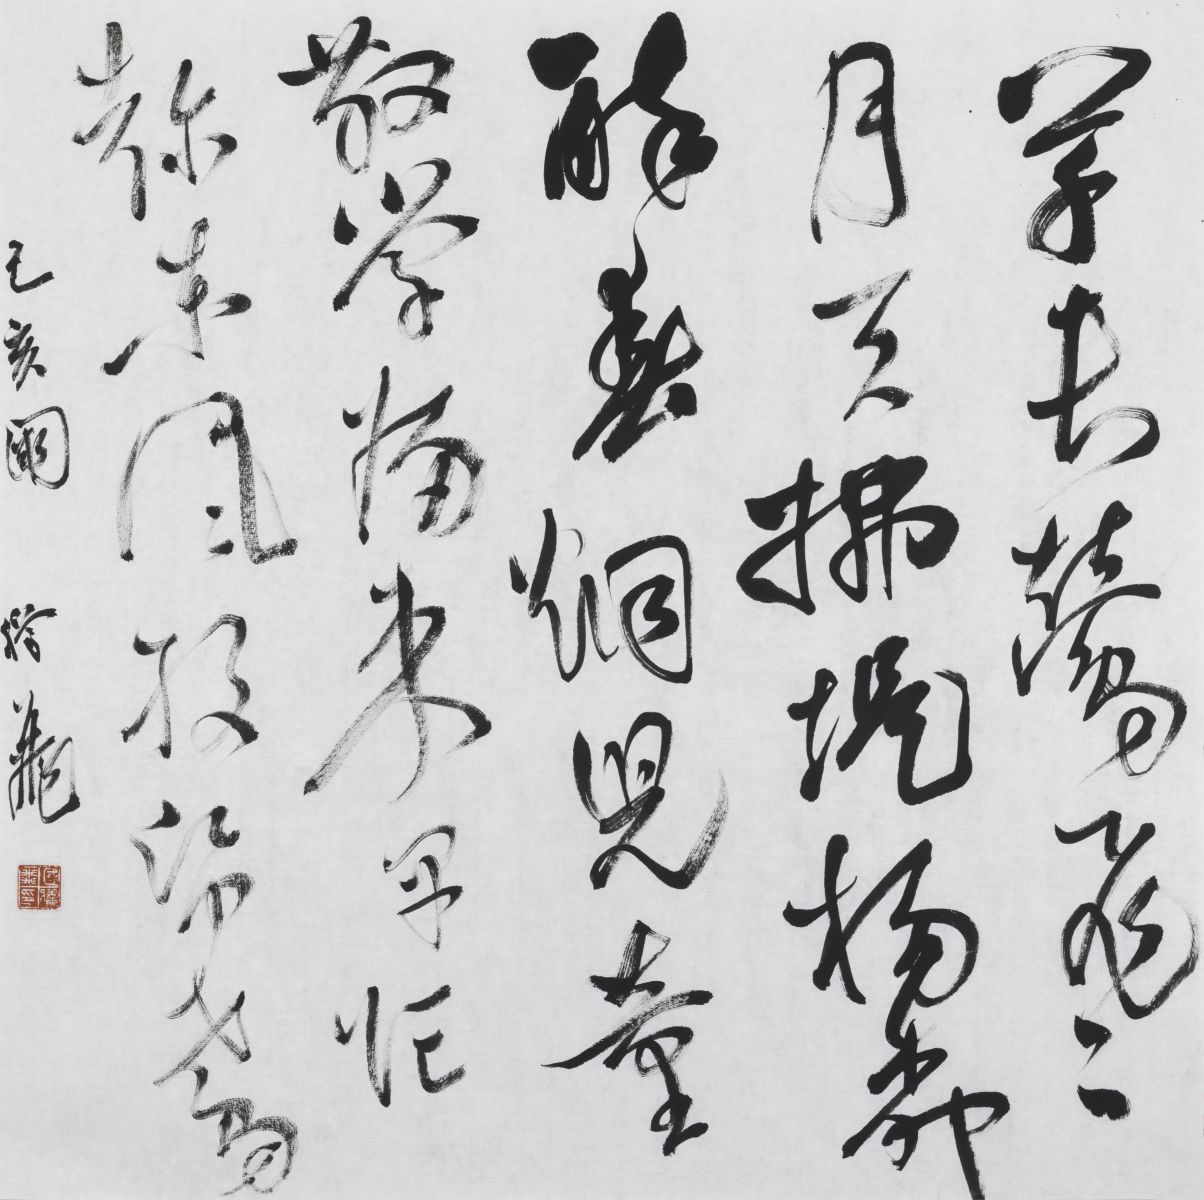 草長鶯飛二
月天拂堤楊柳
醉春烟兒童
散學歸來早忙
趁東風放紙鳶
己亥